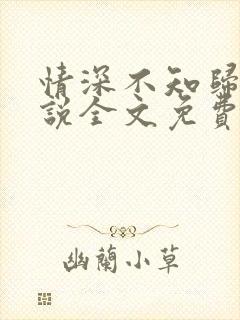 情深不知歸
說全文免費
幽蘭小草